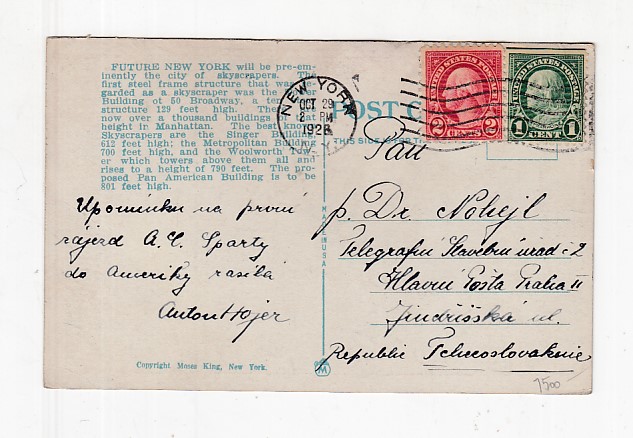 FUTURE NEW YORK will be pre-em-
inently the city of skyscrapers. The
first steel frame structure that was re-
garded as a skyscraper was the
Building at 50 Broadway, a ten
structure 129 feet high. There
now over a thousand buildings that
height in Manhattan. The best known
Skyscrapers are the Singer Building
612 feet high; the Metropolitan Building
700 feet high, and the Woolworth Tow-
er which towers above them all and
rises to a height of 790 feet. The pro-
posed Pan American Building is to be
801 feet high.
Upomínku na první
zájezd A.C. Sparty
do Ameriky zasílá
Anton Hojer
Copyright Moses King, New York.
NEW YORK
OCT 29
2 PM
1926
N.Y.
POST C
THIS SIDE
UNITED STATES POSTAGE
2 CENTS 2
UNITED STATES POSTAGE
1 CENT 1
MADE IN USA
M
Pan
p. Dr. Nohejl
Telegrafní Stavební úřad č 2
Hlavní Pošta Praha II
Jindřišská ul.
Republic Tchecoslovakie
7500